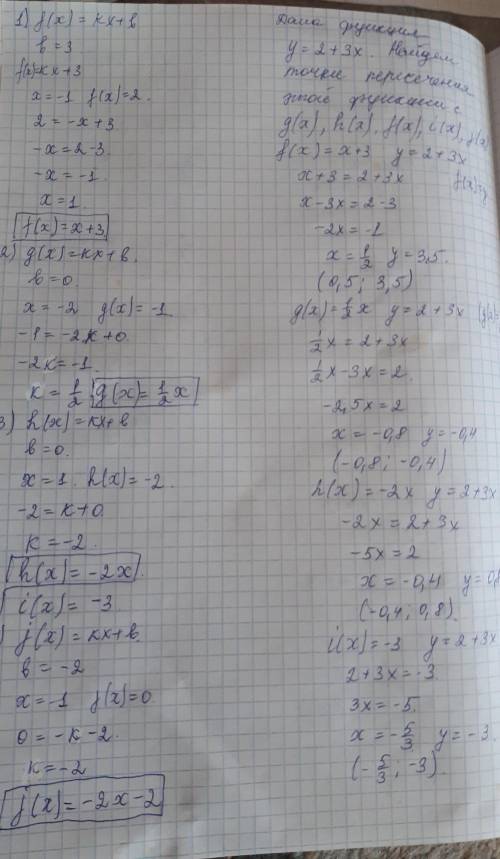 1) f(x) = kx+b
b = 3
f(x)=kx+3
x=-1 f(x)=2.
2 = -x+3
-x=2-3.
-x=-1.
x=1.
f(x)=x+3
2) g(x)=kx+b.
b=0.
x=-2 g(x)=-1.
-1=-2k+0.
-2k=-1.
k=1/2. g(x)=1/2x
3) h(x)=kx+b
b=0.
x=1. h(x)=-2.
-2=k+0.
k=-2.
h(x)=-2x.
) i(x)=-3
) j(x)=kx+b.
b=-2
x=-1 f(x)=0.
0=-k-2.
k=-2
j(x)=-2x-2
Дана функция
y=2+3x. Найдем
точки пересечения
этой функции с
g(x), h(x), f(x), i(x), j(x)
f(x)=x+3 y=2+3x
x+3=2+3x f(x)=y
x-3x=2-3
-2x=-1
x=1/2 y=3,5.
(0,5; 3,5)
g(x)=1/2x y=2+3x (g(x)=
1/2x=2+3x
1/2x-3x=2.
-2,5x=2
x=-0,8 y=-0,4
(-0,8; -0,4)
h(x)=-2x y=2+3x
-2x=2+3x
-5x=2
x=-0,4 y=0,8
(-0,4; 0,8).
i(x)=-3 y=2+3x
2+3x=-3.
3x=-5.
x=-5/3 y=-3.
(-5/3; -3).